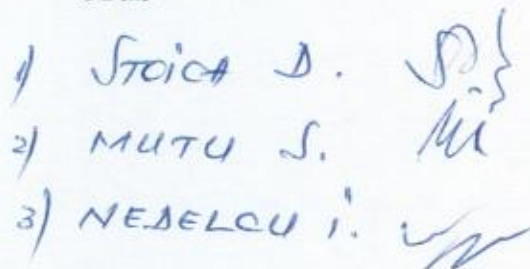 1) STOICA D.
2) MUTU S.
3) NEDELCU i.